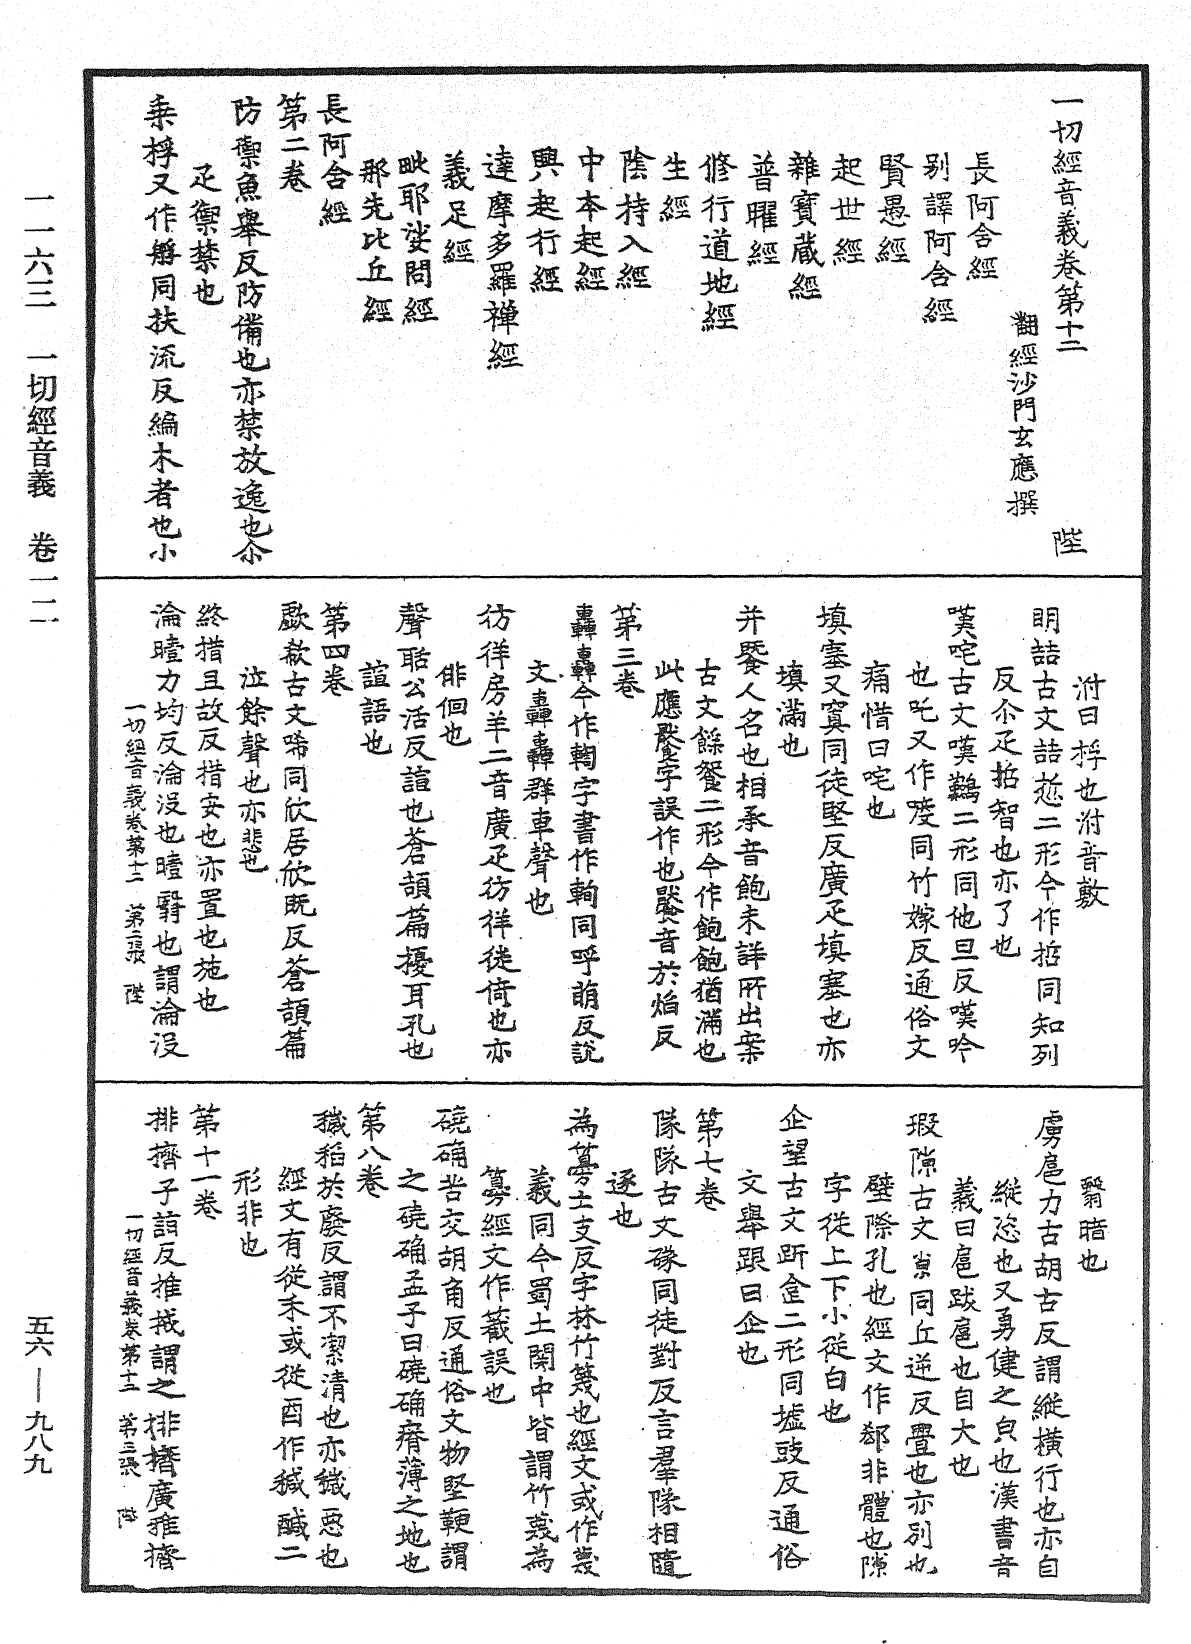 一切經音義卷第十二　陛
翻經沙門玄應撰
長阿含經
別譯阿含經
賢愚經
起世經
雜寶藏經
普曜經
修行道地經
生經
陰持入經
中本起經
興起行經
達摩多羅禪經
義足經
毗耶娑問經
那先比丘經
長阿含經
第二卷
防禦魚舉反防備也亦禁放逸也尒
疋禦禁也
乘桴又作艀同扶流反編木者也小
泭曰桴也泭音敷
明喆古文喆悊二形今作哲同知列
反尒疋哲智也亦了也
嘆咤古文嘆鸛二形同他旦反嘆吟
也吒又作喥同竹嫁反通俗文
痛惜曰咤也
填塞又窴同徒堅反廣疋填塞也亦
填滿也
并餮人名也相承音飽未詳所出案
古文餘䬤二形今作飽飽猶滿也
此應餮字誤作也餮音於焰反
第三卷
轟轟今作輷字書作軥同呼萌反說
文轟轟群車聲也
彷徉房羊二音廣疋彷徉徙倚也亦
俳佪也
聲聒公活反諠也蒼頡篇擾耳孔也
諠語也
第四卷
歔欷古文唏同欣居欣既反蒼頡篇
泣餘聲也亦悲也
終措且故反措安也亦置也施也
淪曀力均反淪沒也曀翳也謂淪沒
一切經音義卷第十二　第二張　陛
翳暗也
虜扈力古胡古反謂縱橫行也亦自
縱恣也又勇健之皃也漢書音
義曰扈跋扈也自大也
瑕隙古文𡭽同丘逆反舋也亦別也
壁際孔也經文作郄非體也隙
字從上下小從白也
企望古文趾𧿁二形同墟豉反通俗
文舉跟曰企也
第七卷
隊隊古文磙同徒對反言羣隊相隨
逐也
為篣士支反字林竹篾也經文或作蔑
義同今蜀土關中皆謂竹蔑為
篣經文作䉷誤也
磽确苦交胡角反通俗文物堅鞕謂
之磽确孟子曰磽确瘠薄之地也
第八卷
穢稻於廢反謂不潔清也亦穢惡也
經文有從禾或從酉作穢醎二
形非也
第十一卷
排擠子詣反推㧻謂之排擠廣雅擠
一切經音義卷第十二　第三張　陛
一一六三　一切經音義　卷一二
五六——九八九